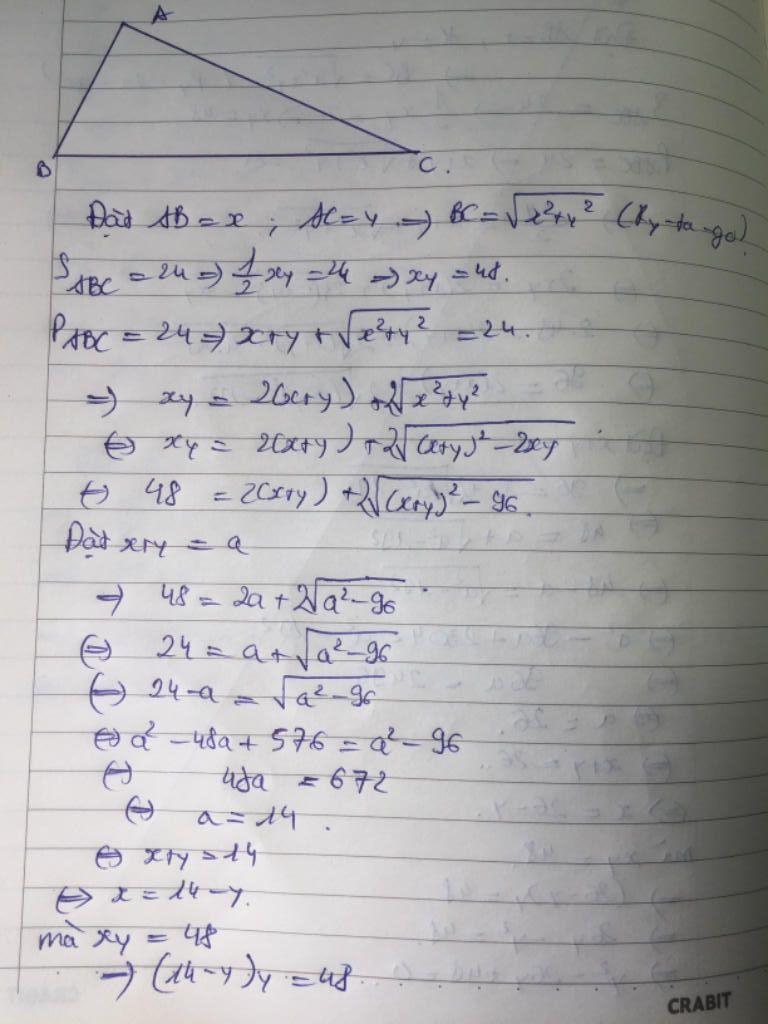 A
B
C.
Đặt AB = x ; AC = y => BC = √(x²+y²) (Py-ta-go)
S_ABC = 24 => 1/2 xy = 24 => xy = 48.
P_ABC = 24 => x+y + √(x²+y²) = 24.
=> xy = 2(x+y) + 2√(x²+y²)
<=> xy = 2(x+y) + 2√((x+y)² - 2xy)
<=> 48 = 2(x+y) + 2√((x+y)² - 96).
Đặt x+y = a
=> 48 = 2a + 2√(a² - 96).
<=> 24 = a + √(a² - 96)
<=> 24 - a = √(a² - 96)
<=> a² - 48a + 576 = a² - 96
<=> 48a = 672
<=> a = 14.
<=> x+y = 14
<=> x = 14 - y.
mà xy = 48
=> (14 - y)y = 48
CRABIT